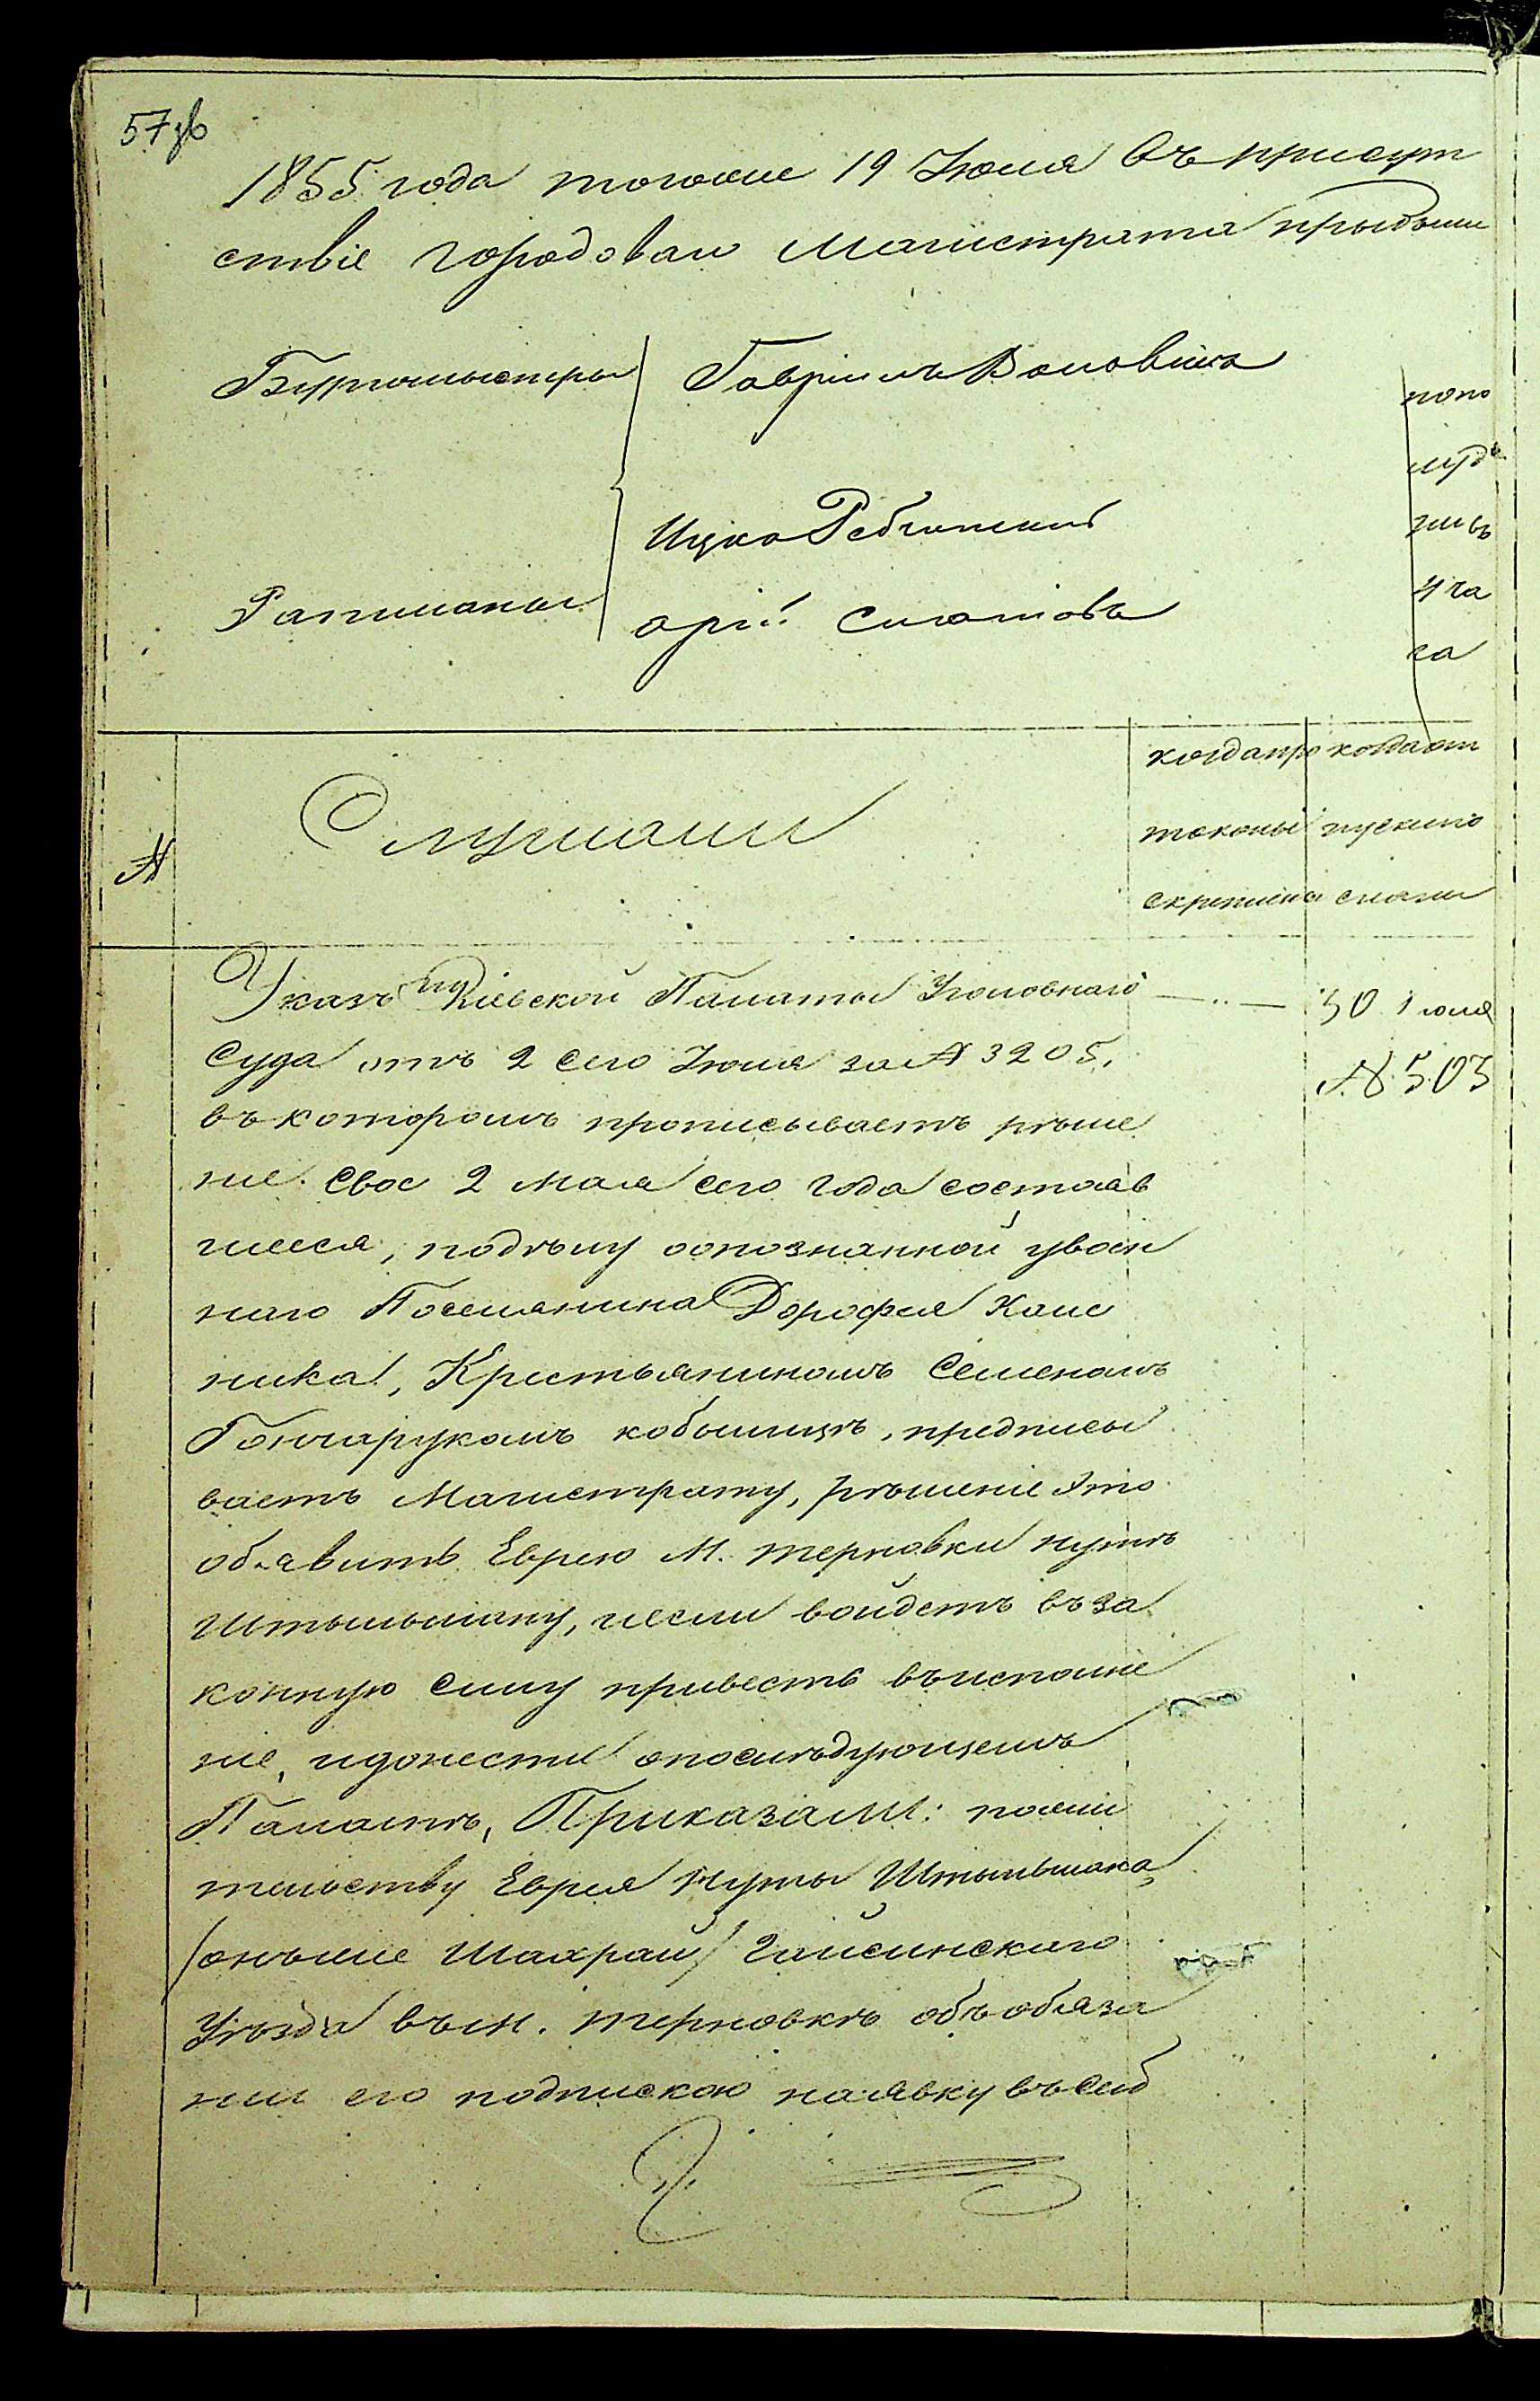 57 зв
1855 года тогоже 19 Июля въ присут
ствіе городоваго Магистрата прибыли
Бургомистры Гаврiилъ Воловикъ
Ицко
Ратманы
попо
лудн
въ
ча
са
№
Слушали
когда про
токолы
скрепиены
когда от
пускипо
сланы
Указъ Кіевской Палаты Уголовнаго
Суда отъ 2 сего Июля за № 3205,
въ которомъ прописываетъ рѣше
ніе свое 2 Мая сего года состояв
шееся, по дѣлу о опознанной у воен
наго Поселянина Дорофея
ника, Крестьяниномъ Семеномъ
Гончарукомъ кобылицѣ, предписы
ваетъ Магистрату, рѣшеніе это
объявить Еврею М. Терновки Нутѣ
Штыльману, и если войдетъ въ за
конную силу привесть въ исполне
ніе, и донести о послѣдующемъ
Палатѣ, Приказали: по жи
тельству Еврея Нуты Штыльмана
/онъже Шахрай/ Гайсинскаго
Уѣзда въ м. Терновкѣ объ обяза
ніи его подпискою на явку въ сей
30 Июля
№ 503